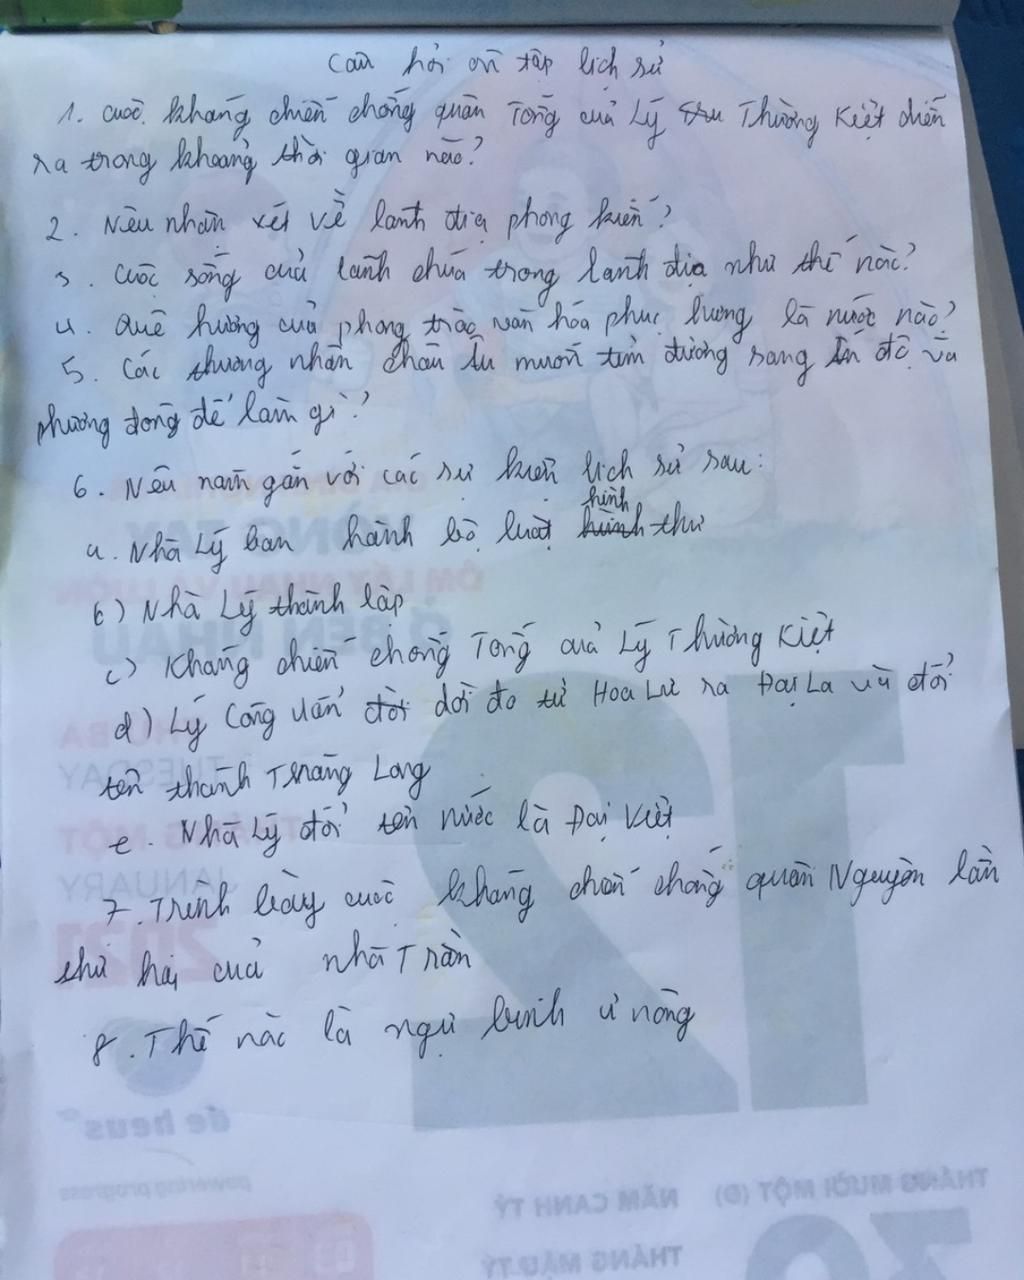 Câu hỏi ôn tập lịch sử
1. cuộc kháng chiến chống quân Tống của Lý Thường Kiệt diễn
ra trong khoảng thời gian nào?
2. Nêu nhận xét về lãnh địa phong kiến?
3. cuộc sống của lãnh chúa trong lãnh địa như thế nào?
4. Quê hương của phong trào văn hóa phục hưng là nước nào?
5. Các thương nhân châu Âu muốn tìm đường sang Ấn độ và
phương đông để làm gì?
6. Nêu năm gắn với các sự kiện lịch sử sau:
a. Nhà Lý ban hành bộ luật hình thư
b) Nhà Lý thành lập
c) Kháng chiến chống Tống của Lý Thường Kiệt
d) Lý Công Uẩn dời đô từ Hoa Lư ra Đại La và đổi
tên thành Thăng Long
e. Nhà Lý đổi tên nước là Đại Việt
7. Trình bày cuộc kháng chiến chống quân Nguyên lần
thứ hai của nhà Trần
8. Thế nào là ngụ binh ư nông
VÒNG TAY
Ở BÊN NHAU
THỨ BA
TUESDAY
THÁNG MỘT
JANUARY
2021
12
de heus
powering progress
THÁNG MƯỜI MỘT (Đ) NĂM CANH TÝ
30 THÁNG MẬU TÝ